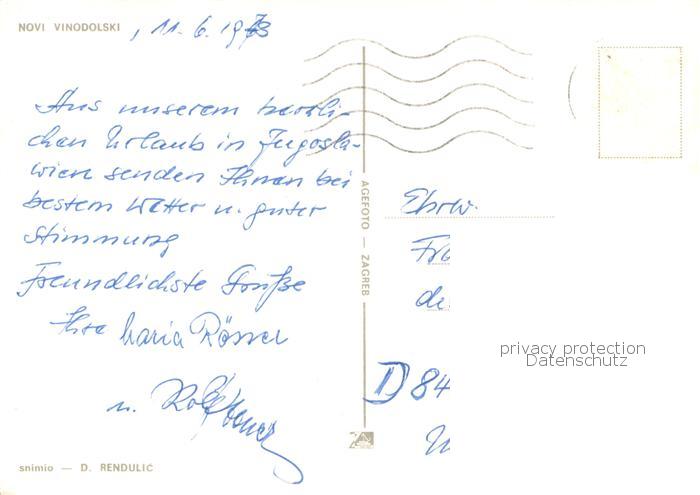 NOVI VINODOLSKI , 11.6.1973
Aus unserem herrli-
chen Urlaub in Jugosla-
wien senden Ihnen bei
bestem Wetter u. guter
Stimmung
Freundlichste Grüße
Ihre Maria Rösner
u. Rolf
snimio — D. RENDULIĆ
AGEFOTO — ZAGREB
Ehrw.
Fr
de
D 84
privacy protection
Datenschutz